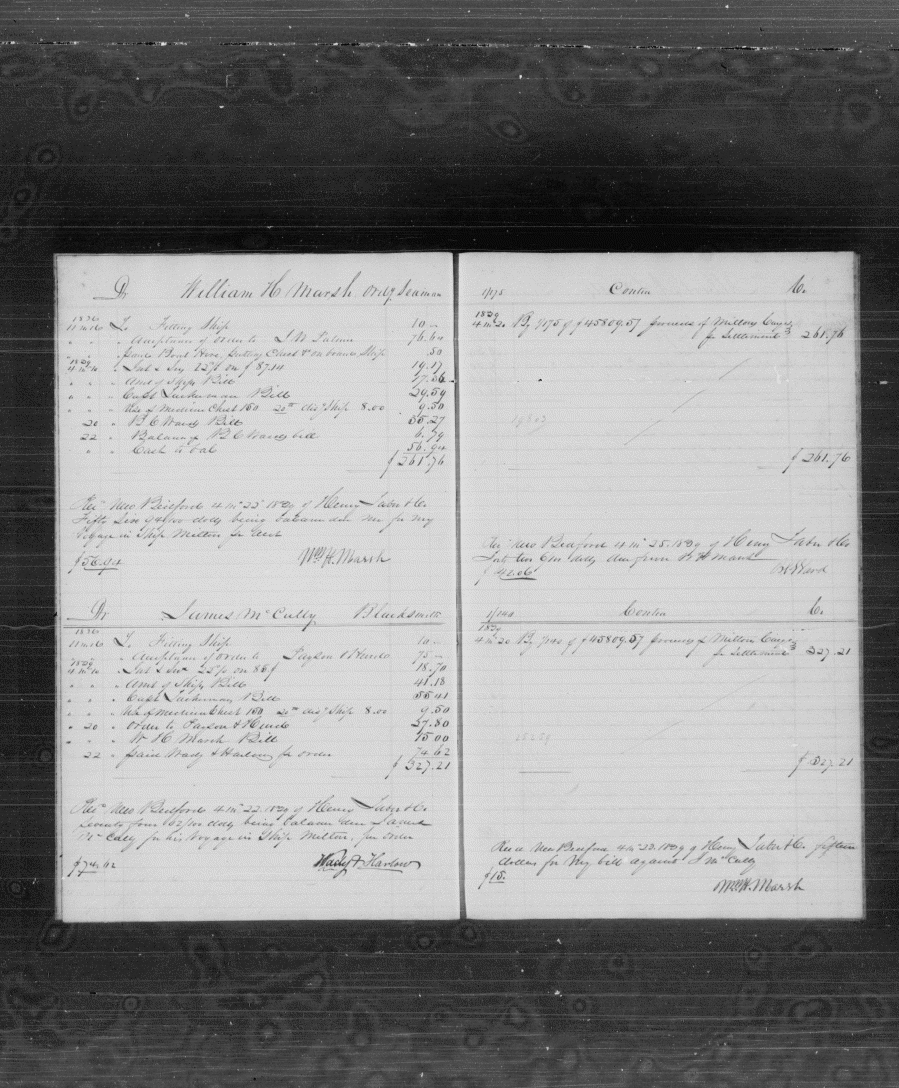 Dr William H Marsh Ordy Seaman
1836
11 mo 16 To Fitting Ship 10 -
" " " Amt paum of order to J M Palmer 76.64
" " " paid Boat Hire, putting Chest &c on board Ship .50
1839
4 mo 10 " Int & Ins 22% on $87.14 19.17
" " " Amt of Ships Bill
" " " Capt Bill 29.59
" " " Use of Medicine Chest 150 20th disg Ship 8.00 9.50
20 " B C Ward Bill 35.27
22 " Balance B C Wards bill 6.79
" " Cash to bal 56.94
$ 261.76
Recd New Bedford 4 mo 25 1839 of Henry Taber & Co
Fifty Six 94/100 dolls being balance due me for my
Voyage in Ship Milton
$56.94
Wm H. Marsh
Dr James McCully Blacksmith
1836
11 mo 16 To Fitting Ship 10 -
" " order to 75 -
1839
4 mo 10 " Int & Ins 22% on 85 $ 18.70
" " " Amt of Ships Bill 41.18
" " " Capt Bill 55.41
" " " Use of Medicine Chest 150 20th disg Ship 8.00 9.50
" 20 " Order to 27.80
" " " W H Marsh Bill 15.00
22 " paid Wady & Harlow for order 74.62
$ 327.21
Recd New Bedford 4 mo 22 1839 of Henry Taber & Co
Seventy four 62/100 dolls being balance due James
McCully for his Voyage in Ship Milton, per order
$74.62
Wady & Harlow
1/175 Contra Cr.
1839
4 mo 20 By 1/175 of $45809.57 proceeds of Miltons Cargo
for Settlement 261.76
$ 261.76
Recd New Bedford 4 mo 25. 1839 of Henry Taber & Co
dolls due from W H Marsh
$ 42.06
B C Ward
1/140 Contra Cr.
1839
4 mo 20 By 1/140 of $45809.57 proceeds of Milton Cargo
for Settlement 327.21
$ 327.21
Recd New Bedford 4 mo 23. 1839 of Henry Taber & Co. fifteen
dollars for my bill against J McCully
$15.
Wm H. Marsh